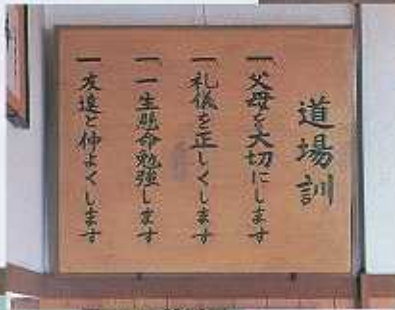 道場訓
一 父母を大切にします
一 礼儀を正しくします
一 一生懸命勉強します
一 友達と仲よくします